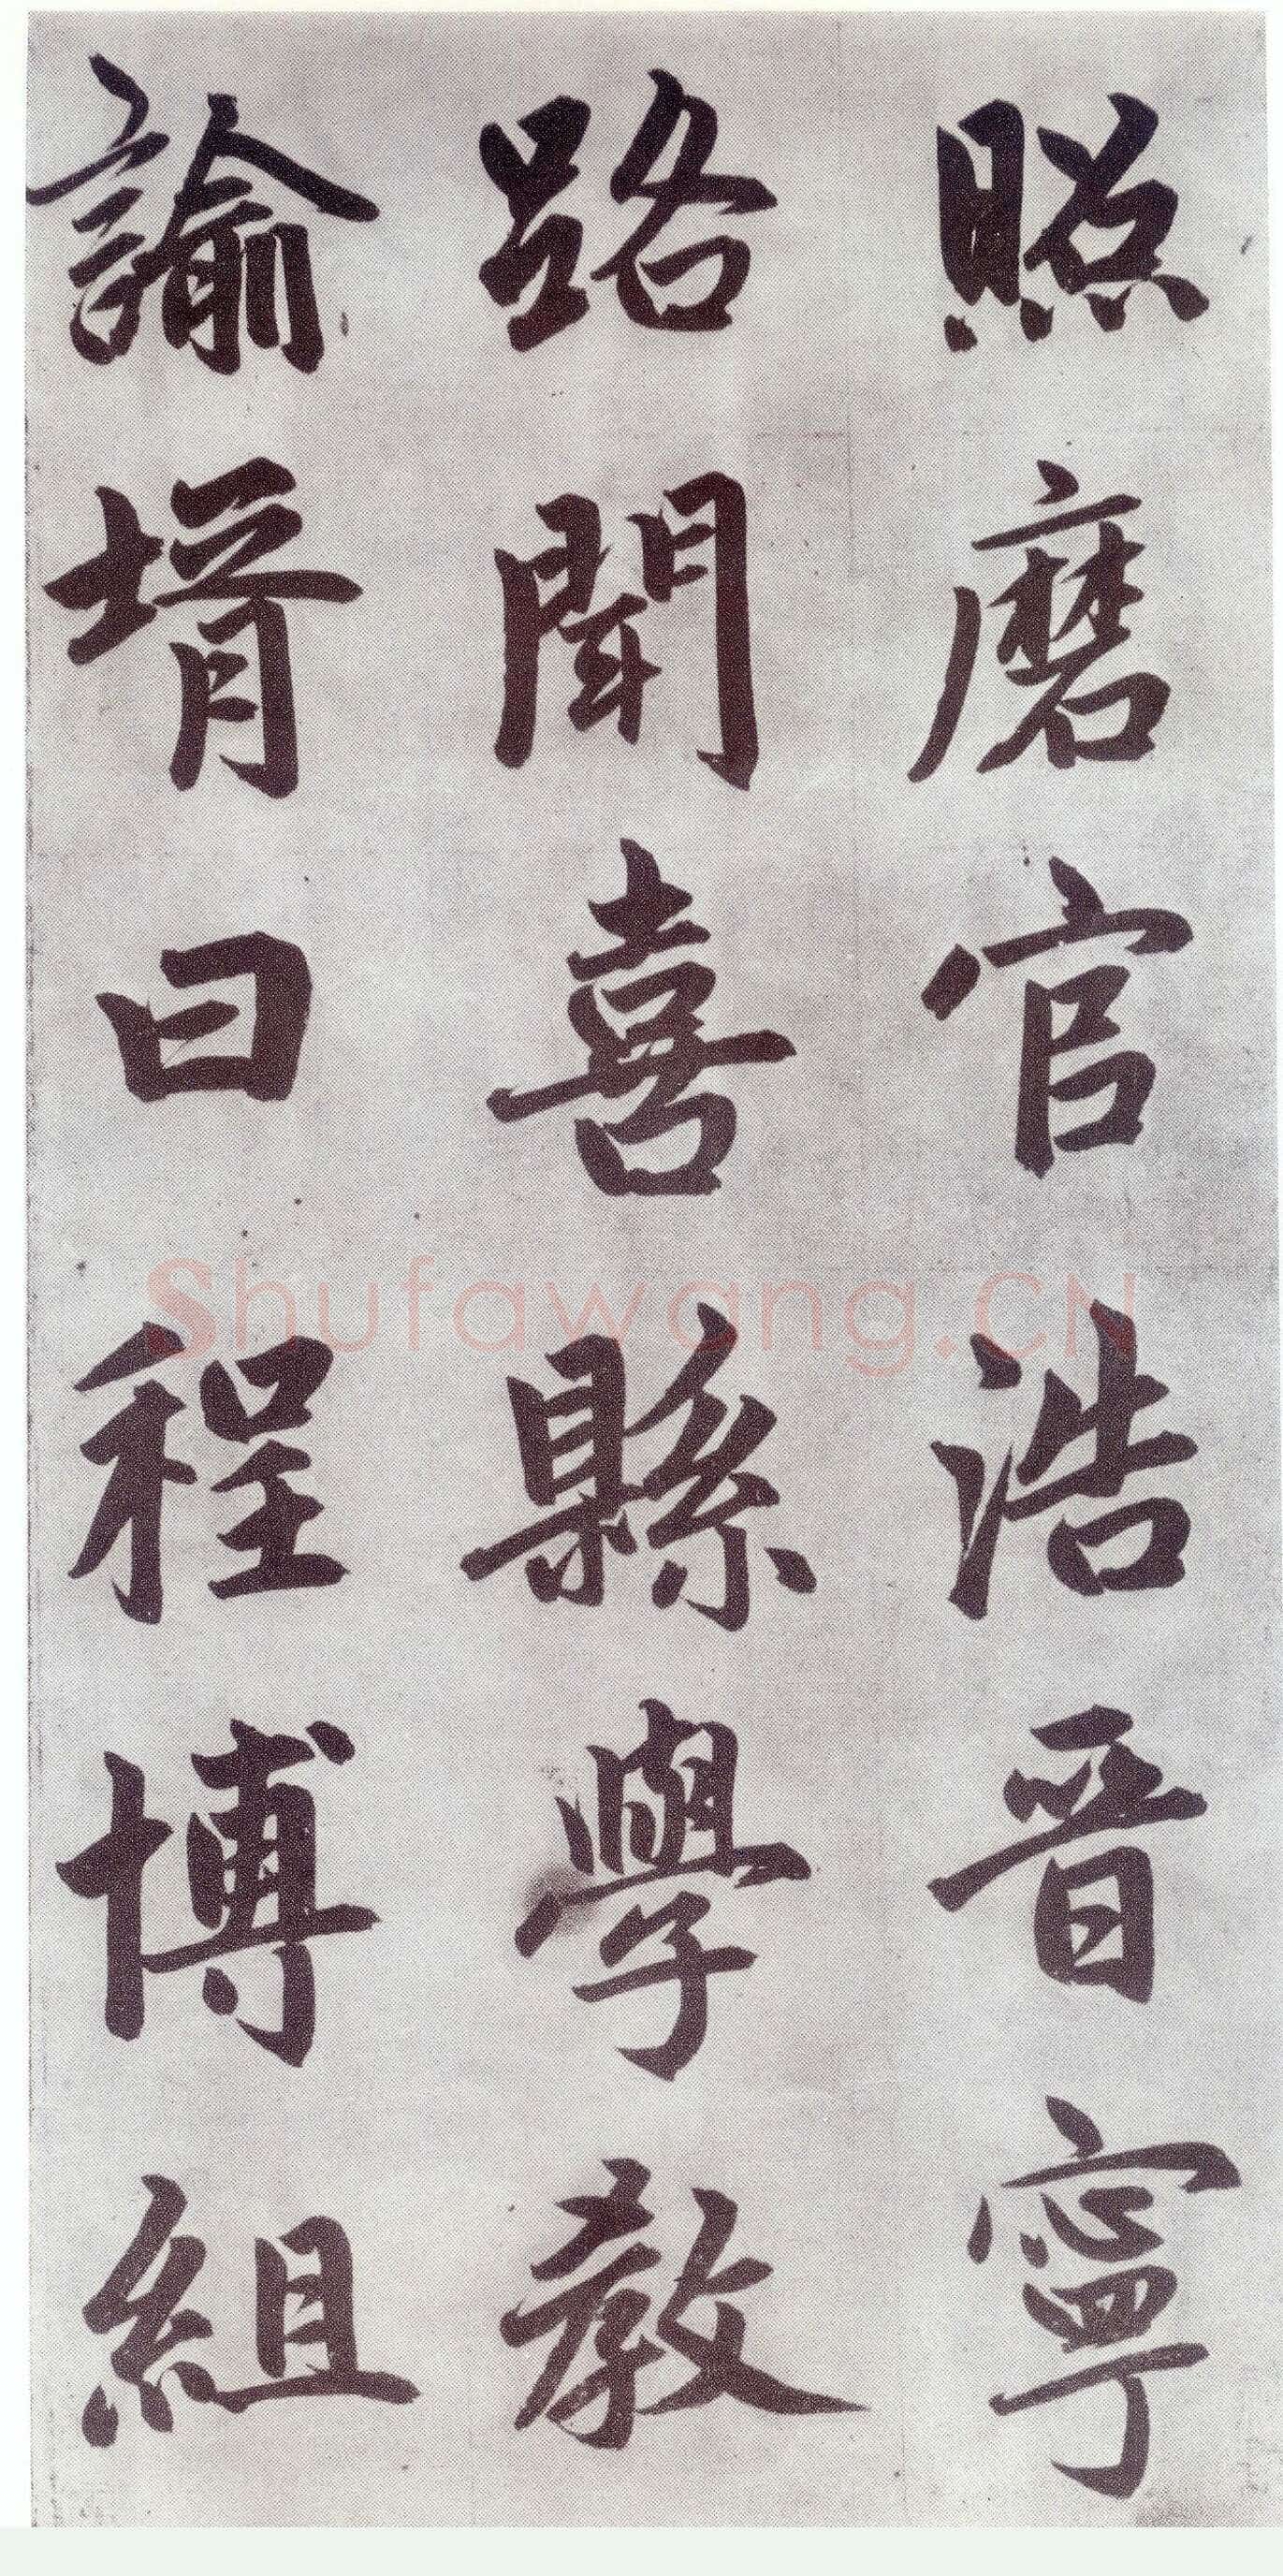 照磨官浩晉寧
路聞喜縣學教
諭壻曰程博組
Shufawang.CN